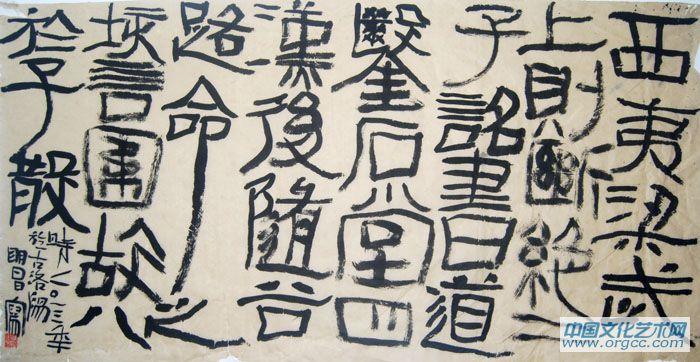 西夷梁
上則斷絕二
子詺書曰道
鑿石堂四
漢後隨谷
路命之
言故八
於子散
於古洛陽
明昌寫
中国文化艺术网
www.orgcc.com